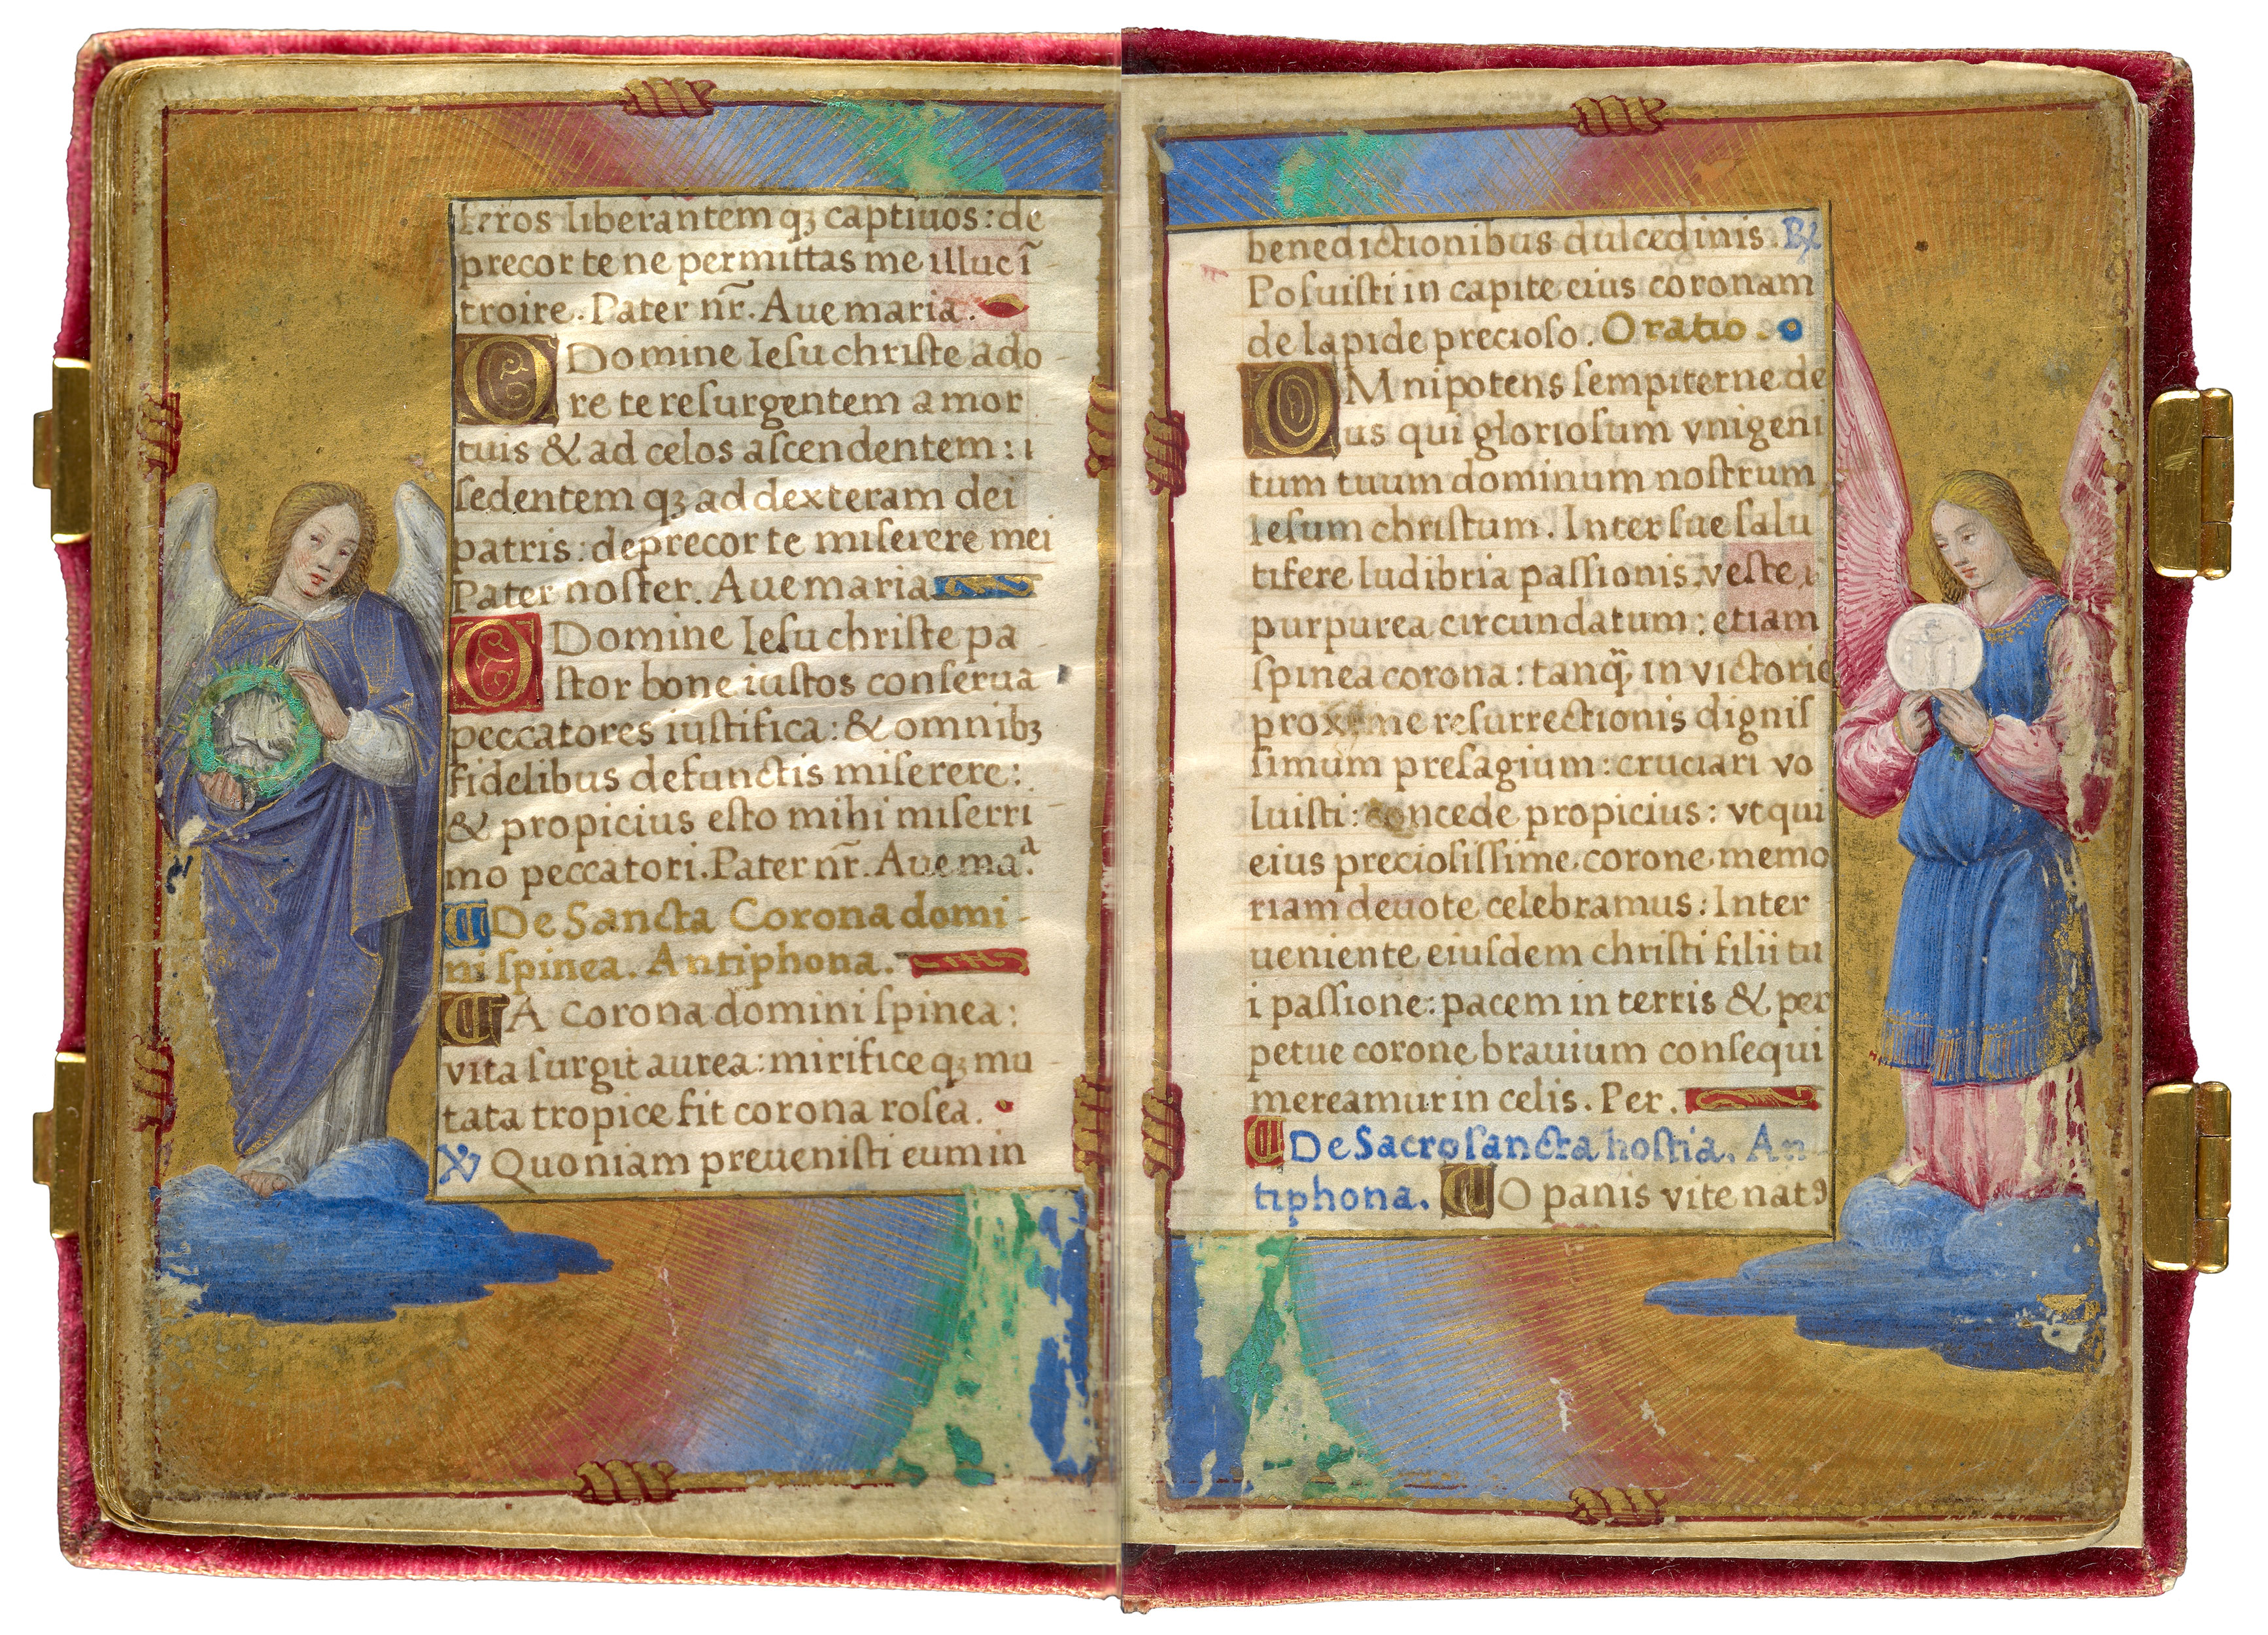 feros liberantem qꝫ captiuos: de
precor te ne permittas me illuc ī
troire. Pater nr̄. Aue maria.
O Domine Iesu christe ado
re te resurgentem a mor
tuis & ad celos ascendentem: i
sedentem qꝫ ad dexteram dei
patris: deprecor te miserere mei
Pater noster. Aue maria
O Domine Iesu christe pa
stor bone iustos conserua
peccatores iustifica: & omnibꝫ
fidelibus defunctis miserere:
& propicius esto mihi miserri
mo peccatori. Pater nr̄. Aue maᵃ.
De Sancta Corona domi-
ni spinea. Antiphona.
A Corona domini spinea:
vita surgit aurea: mirifice qꝫ mu
tata tropice fit corona rosea.
℣ Quoniam preuenisti eum in
benedictionibus dulcedinis. ℟
Posuisti in capite eius coronam
de lapide precioso. Oratio.
OMnipotens sempiterne de
us qui gloriosum vnigeni
tum tuum dominum nostrum
Iesum christum. Inter sue salu
tifere ludibria passionis, veste,
purpurea circundatum: etiam
spinea corona: tanq̈ in victorie
proxime resurrectionis dignis
simum presagium: cruciari vo
luisti: concede propicius: vt qui
eius preciosissime corone memo
riam deuote celebramus: Inter
ueniente eiusdem christi filii tu
i passione: pacem in terris & per
petue corone brauium consequi
mereamur in celis. Per.
De Sacrosancta hostia. An-
tiphona. O panis vite natꝯ